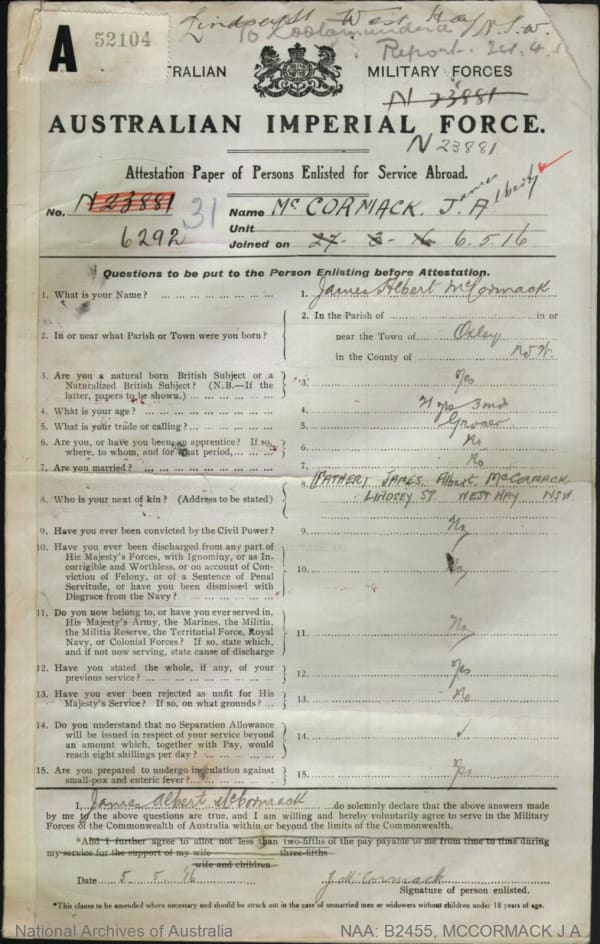 Lindsey St West Hay N.S.W.
A 52104
To Cootamundra
Report. 24.4.
AUSTRALIAN MILITARY FORCES
N 23881
AUSTRALIAN IMPERIAL FORCE.
N 23881
Attestation Paper of Persons Enlisted for Service Abroad.
No. N 23881 31 Name McCORMACK. J. A James Albert
6292 Unit
Joined on 27- 3- 16 6.5.16
Questions to be put to the Person Enlisting before Attestation.
1. What is your Name? 1. James Albert McCormack
2. In or near what Parish or Town were you born? 2. In the Parish of in or
near the Town of Oxley
in the County of NSW
3. Are you a natural born British Subject or a
Naturalized British Subject? (N.B.—If the
latter, papers to be shown.) 3. Yes
4. What is your age? 4. 21 yrs 3 mths
5. What is your trade or calling? 5. Grocer
6. Are you, or have you been, an apprentice? If so,
where, to whom, and for what period, 6. No
7. Are you married? 7. No
8. Who is your next of kin? (Address to be stated) 8. (FATHER) JAMES Albert McCORMACK
LINDSEY ST. WEST HAY NSW.
9. Have you ever been convicted by the Civil Power? 9. No
10. Have you ever been discharged from any part of
His Majesty's Forces, with Ignominy, or as In-
corrigible and Worthless, or on account of Con-
viction of Felony, or of a Sentence of Penal
Servitude, or have you been dismissed with
Disgrace from the Navy? 10. No
11. Do you now belong to, or have you ever served in,
His Majesty's Army, the Marines, the Militia,
the Militia Reserve, the Territorial Force, Royal
Navy, or Colonial Forces? If so, state which,
and if not now serving, state cause of discharge 11. No
12. Have you stated the whole, if any, of your
previous service? 12. Yes
13. Have you ever been rejected as unfit for His
Majesty's Service? If so, on what grounds? 13. No
14. Do you understand that no Separation Allowance
will be issued in respect of your service beyond
an amount which, together with Pay, would
reach eight shillings per day? 14. ✓
15. Are you prepared to undergo inoculation against
small-pox and enteric fever? 15. Yes
I, James Albert McCormack do solemnly declare that the above answers made
by me to the above questions are true, and I am willing and hereby voluntarily agree to serve in the Military
Forces of the Commonwealth of Australia within or beyond the limits of the Commonwealth.
*And I further agree to allot not less than two-fifths of the pay payable to me from time to time during
three-fifths
my service for the support of my wife
wife and children
Date 5. 5. 16 J McCormack
Signature of person enlisted.
*This clause to be amended where necessary and should be struck out in the case of unmarried men or widowers without children under 18 years of age.
National Archives of Australia NAA: B2455, MCCORMACK J A